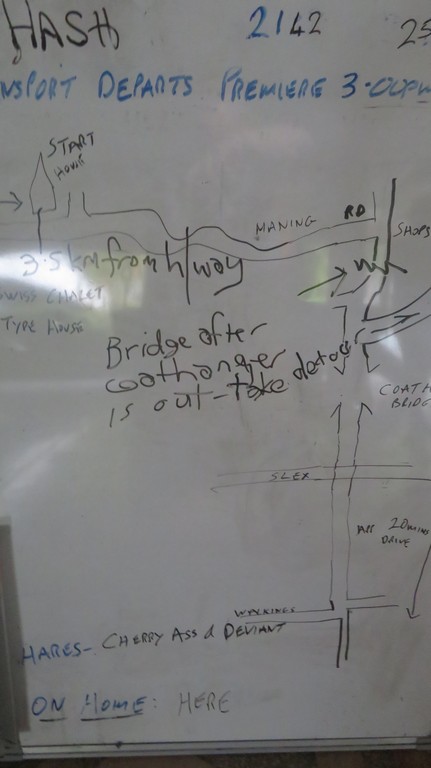 HASH 2142 25
NSPORT DEPARTS PREMIERE 3.00pm
START
HOUSE
MANING RD
SHOPS
3.5km from h/way
SWISS CHALET
TYPE HOUSE
Bridge after
coathanger
is out - take detour
COATH
BRIDG
SLEX
20 mins
DRIVE
WATKINGS
HARES - CHERRY ASS & DEVIANT
ON HOME: HERE